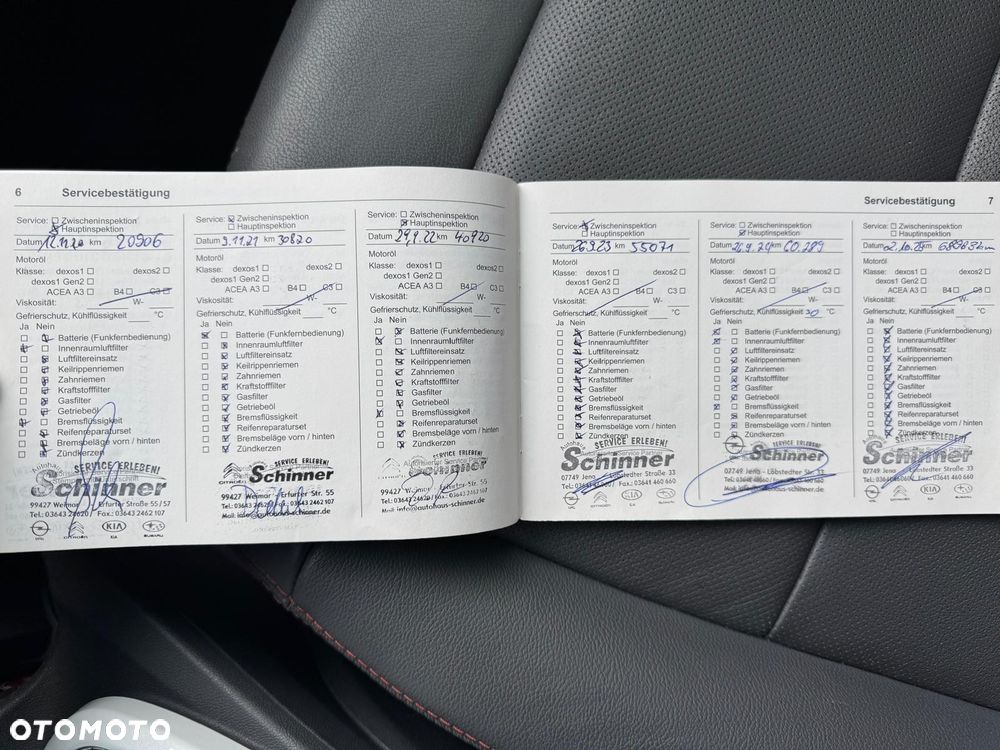 6 Servicebestätigung
Service: Zwischeninspektion
Hauptinspektion
Datum 12.11.20 km 20906
Motoröl
Klasse: dexos1 dexos2
dexos1 Gen2
ACEA A3 B4 C3
Viskosität: W-
Gefrierschutz, Kühlflüssigkeit °C
Ja Nein
Batterie (Funkfernbedienung)
Innenraumluftfilter
Luftfiltereinsatz
Keilrippenriemen
Zahnriemen
Kraftstofffilter
Gasfilter
Getriebeöl
Bremsflüssigkeit
Reifenreparaturset
Bremsbeläge vorn / hinten
Zündkerzen
SERVICE ERLEBEN!
Schinner
99427 Weimar Erfurter Straße 55/57
Tel.: 03643 24620 / Fax.: 03643 2462 107
OPEL CITROËN KIA SUBARU
Service: Zwischeninspektion
Hauptinspektion
Datum 9.11.21 km 30820
Motoröl
Klasse: dexos1 dexos2
dexos1 Gen2
ACEA A3 B4 C3
Viskosität: W-
Gefrierschutz, Kühlflüssigkeit °C
Ja Nein
Batterie (Funkfernbedienung)
Innenraumluftfilter
Luftfiltereinsatz
Keilrippenriemen
Zahnriemen
Kraftstofffilter
Gasfilter
Getriebeöl
Bremsflüssigkeit
Reifenreparaturset
Bremsbeläge vorn / hinten
Zündkerzen
SERVICE ERLEBEN!
Schinner
CITROËN
99427 Weimar Erfurter Str. 55
Tel.: 03643 24620 Fax.: 03643 2462 107
Mail: info@autohaus-schinner.de
Service: Zwischeninspektion
Hauptinspektion
Datum 29.9.22 km 40920
Motoröl
Klasse: dexos1 dexos2
dexos1 Gen2
ACEA A3 B4 C3
Viskosität: W-
Gefrierschutz, Kühlflüssigkeit °C
Ja Nein
Batterie (Funkfernbedienung)
Innenraumluftfilter
Luftfiltereinsatz
Keilrippenriemen
Zahnriemen
Kraftstofffilter
Gasfilter
Getriebeöl
Bremsflüssigkeit
Reifenreparaturset
Bremsbeläge vorn / hinten
Zündkerzen
SERVICE ERLEBEN!
Schinner
99427 Weimar Erfurter Str. 55
Tel.: 03643 24620 Fax.: 03643 2462 107
Mail: info@autohaus-schinner.de
Servicebestätigung 7
Service: Zwischeninspektion
Hauptinspektion
Datum 26.9.23 km 55071
Motoröl
Klasse: dexos1 dexos2
dexos1 Gen2
ACEA A3 B4 C3
Viskosität: W-
Gefrierschutz, Kühlflüssigkeit °C
Ja Nein
Batterie (Funkfernbedienung)
Innenraumluftfilter
Luftfiltereinsatz
Keilrippenriemen
Zahnriemen
Kraftstofffilter
Gasfilter
Getriebeöl
Bremsflüssigkeit
Reifenreparaturset
Bremsbeläge vorn / hinten
Zündkerzen
SERVICE ERLEBEN!
Schinner
07749 Jena Löbstedter Straße 33
Fax.: 03641 460 660
KIA SUBARU
Service: Zwischeninspektion
Hauptinspektion
Datum 26.9.24 km 60.289
Motoröl
Klasse: dexos1 dexos2
dexos1 Gen2
ACEA A3 B4 C3
Viskosität: W-
Gefrierschutz, Kühlflüssigkeit 30 °C
Ja Nein
Batterie (Funkfernbedienung)
Innenraumluftfilter
Luftfiltereinsatz
Keilrippenriemen
Zahnriemen
Kraftstofffilter
Gasfilter
Getriebeöl
Bremsflüssigkeit
Reifenreparaturset
Bremsbeläge vorn / hinten
Zündkerzen
SERVICE ERLEBEN!
Schinner
07749 Jena Löbstedter Str. 33
Service: Zwischeninspektion
Hauptinspektion
Datum km
Motoröl
Klasse: dexos1 dexos2
dexos1 Gen2
ACEA A3 B4 C3
Viskosität: W-
Gefrierschutz, Kühlflüssigkeit °C
Ja Nein
Batterie (Funkfernbedienung)
Innenraumluftfilter
Luftfiltereinsatz
Keilrippenriemen
Zahnriemen
Kraftstofffilter
Gasfilter
Getriebeöl
Bremsflüssigkeit
Reifenreparaturset
Bremsbeläge vorn / hinten
Zündkerzen
SERVICE ERLEBEN!
Schinner
07749 Jena Löbstedter Straße 33
03641 460 660
OTOMOTO